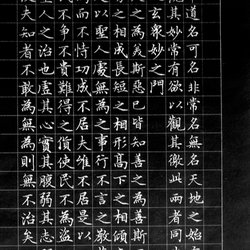 道名可名非常名無名天地之始
觀其妙常有欲以觀其徼此兩者同
之玄衆妙之門
之為美斯惡已皆知善之為善斯
之相成長短之相形高下之相傾
是以聖人處無為之事行不言之教
而不恃功成不居夫惟不居是以
民不爭不貴難得之貨使民不為盜
聖人之治也虛其心實其腹弱其志
使夫知者不敢為無為則無不治矣